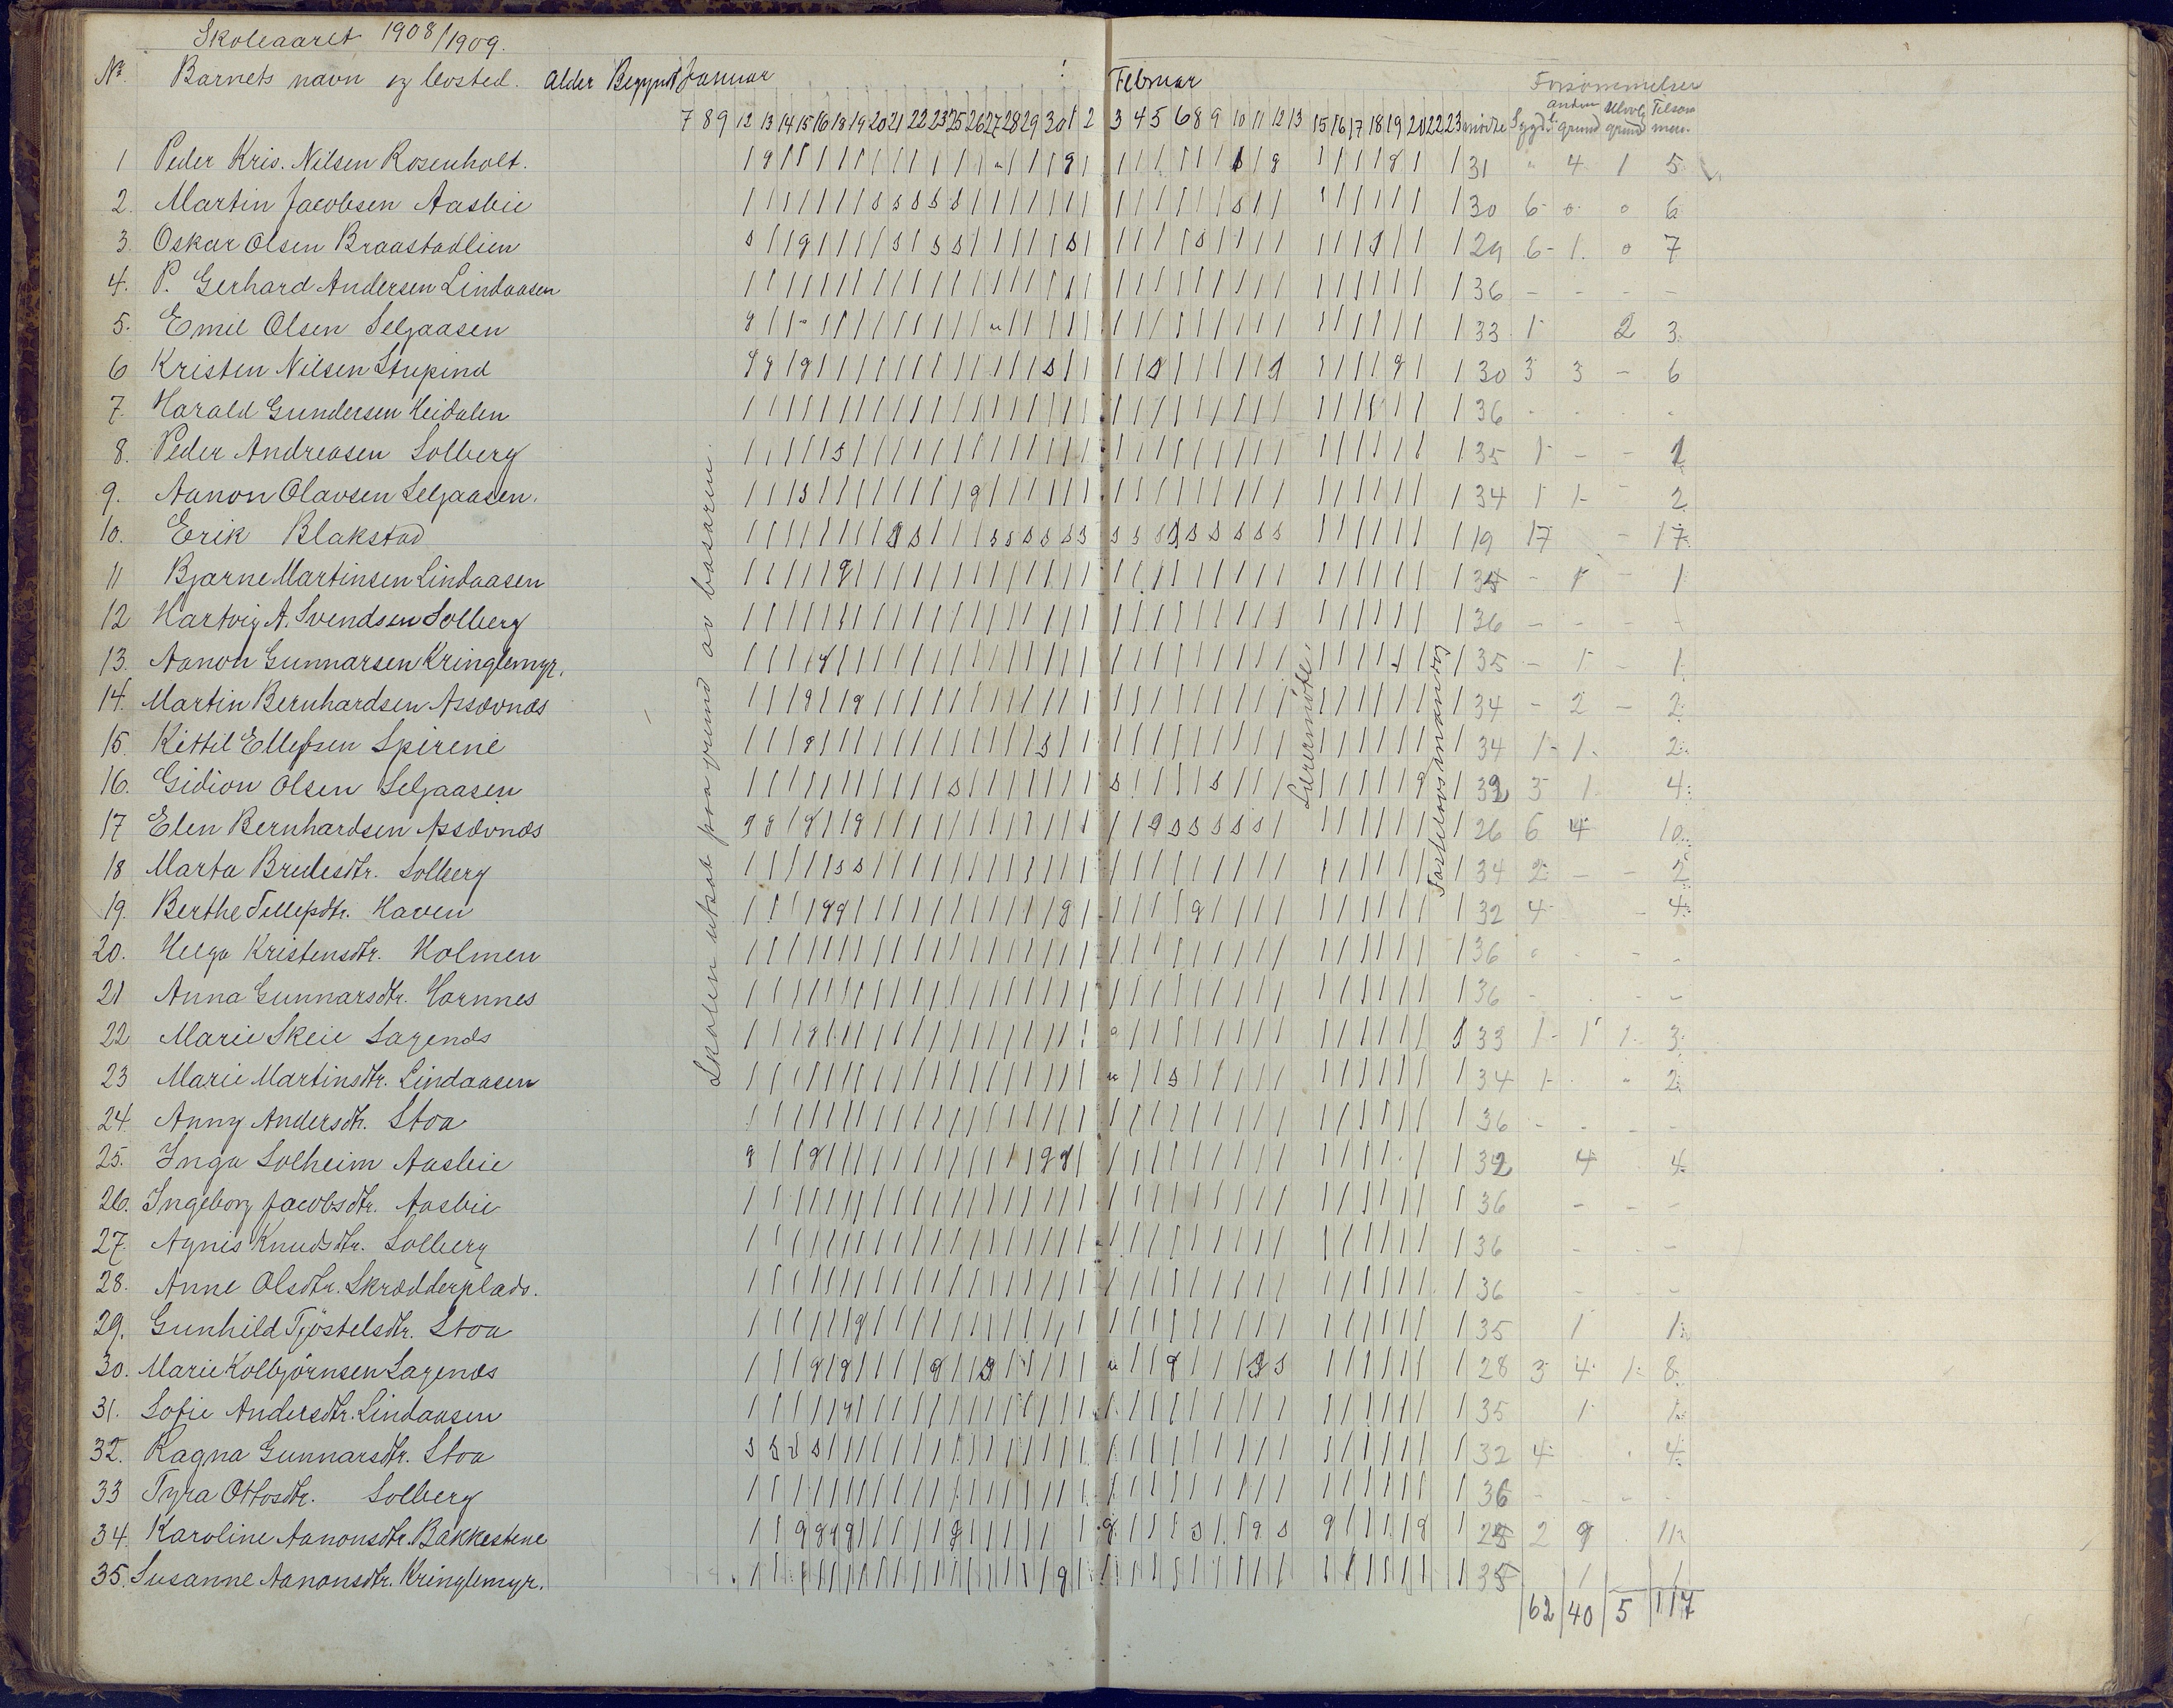 Skoleaaret 1908/1909.
No. Barnets navn og bosted. Alder Begynt Januar Februar Forsømmelser
7 8 9 12 13 14 15 16 18 19 20 21 22 23 25 26 27 28 29 30 1 2 3 4 5 6 8 9 10 11 12 13 15 16 17 18 19 20 22 23 mødte Sygd. anden grund Ulovlig grund Tilsammen.
1 Peder Kris. Nilsen Rosenholt. 31 " 4 1 5
2. Martin Jacobsen Aasbie 30 6 0 0 6
3. Oskar Olsen Braastadlien 29 6 - 1. 0 7
4. P. Gerhard Andersen Lindaasen 36 - - - -
5. Emil Olsen Seljaasen 33 1 2 3
6 Kristen Nilsen Stupind 30 3 3 - 6
7. Harald Gundersen Heidalen 36
8. Peder Andreasen Solberg 35 1 - - 1
9. Aanon Olavsen Seljaasen. 34 1 1 - 2
10. Erik Blakstad 19 17 - 17
11 Bjarne Martinsen Lindaasen 35 - 1 - 1
12 Hartvig A. Svendsen Solberg 36 - - - -
13. Aanon Gunnarsen Kringlemyr. 35 - 1 - 1
14. Martin Bernhardsen Assævnæs 34 - 2 - 2
15. Kittil Ellefsen Spirene 34 1 - 1 - 2
16. Gidion Olsen Seljaasen 32 3 1 4
17 Elen Bernhardsen Assævnæs 26 6 4 10
18 Marta Bredesdtr. Solberg 34 2 - - 2
19. Berthe Tellefsdtr. Haven 32 4 - 4
20. Helga Kristensdtr. Holmen 36
21 Anna Gunnarsdtr. Hornnes 36 - - -
22 Marie Skeie Sagenæs 33 1 - 1 1 - 3
23 Marie Martinsdtr. Lindaasen 34 1 - " 2
24. Anny Andersdtr. Stoa 36
25. Inga Solheim Aasbie 32 4 4
26. Ingeborg Jacobsdtr. Aasbie 36 - - -
27. Agnes Knudsdtr. Solberg 36 - -
28. Anne Olsdtr. Skrædderplads. 36
29. Gunhild Tjøstelsdtr. Stoa 35 1 1
30. Marie Kolbjørnsen Sagenæs 28 3 4 1 8
31. Sofie Andersdtr. Lindaasen 35 1 1
32. Ragna Gunnarsdtr. Stoa 32 4 4
33 Tyra Ottosdtr. Solberg 36 - -
34. Karoline Aanonsdtr. Bakkestene 25 2 9 11
35. Susanne Aanonsdtr. Kringlemyr. 35 1 1
62 40 5 117
Skolen utsat paa grund av basaren.
Lærermøte.
Fastelavnsmandag